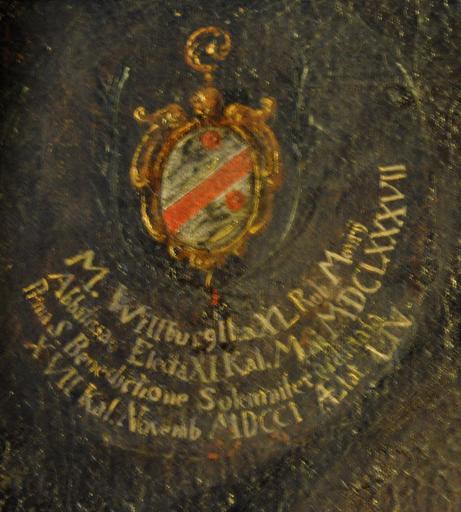 M. Willburgis XL Rub. Montis
Abbatissa Electa XI Kal. Maij MDCLXXXVII
Prima S. Benedictione Solemniter
XVII Kal. Novemb MDCCI Ætat. LIV